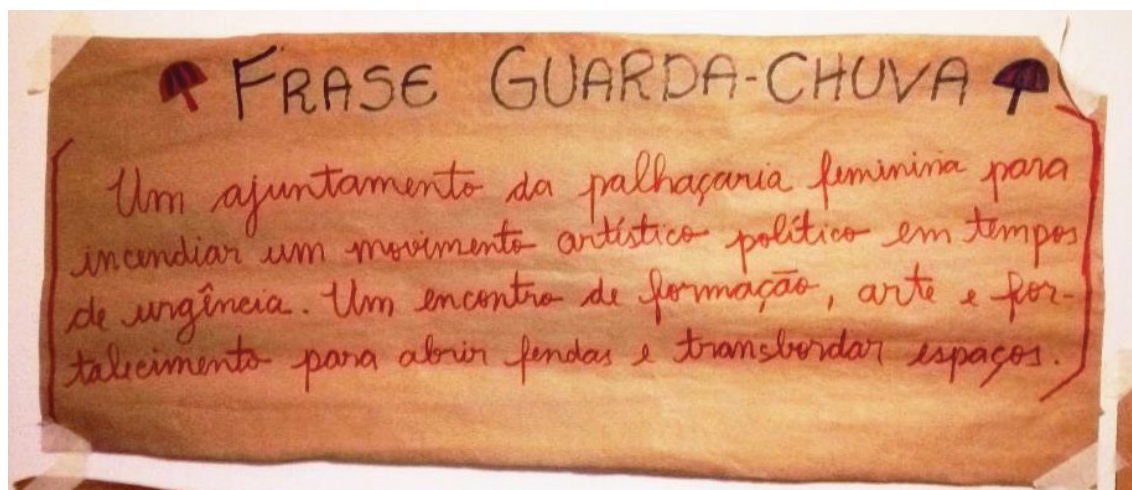 FRASE GUARDA-CHUVA
Um ajuntamento da palhaçaria feminina para
incendiar um movimento artístico político em tempos
de urgência. Um encontro de formação, arte e for-
talecimento para abrir fendas e transbordar espaços.